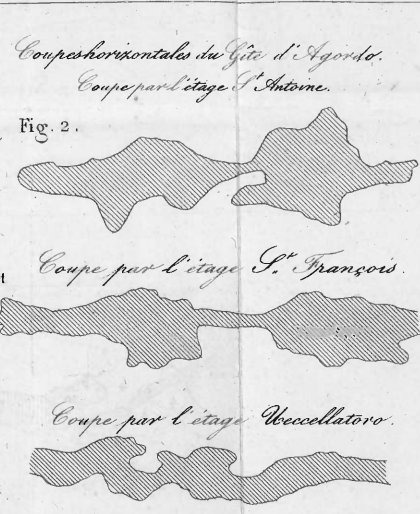 Coupes horizontales du Gîte d'Agordo.
Coupe par l'étage S.t Antoine.
Fig. 2.
Coupe par l'étage S.r François.
t
Coupe par l'étage Ueccellatoro.